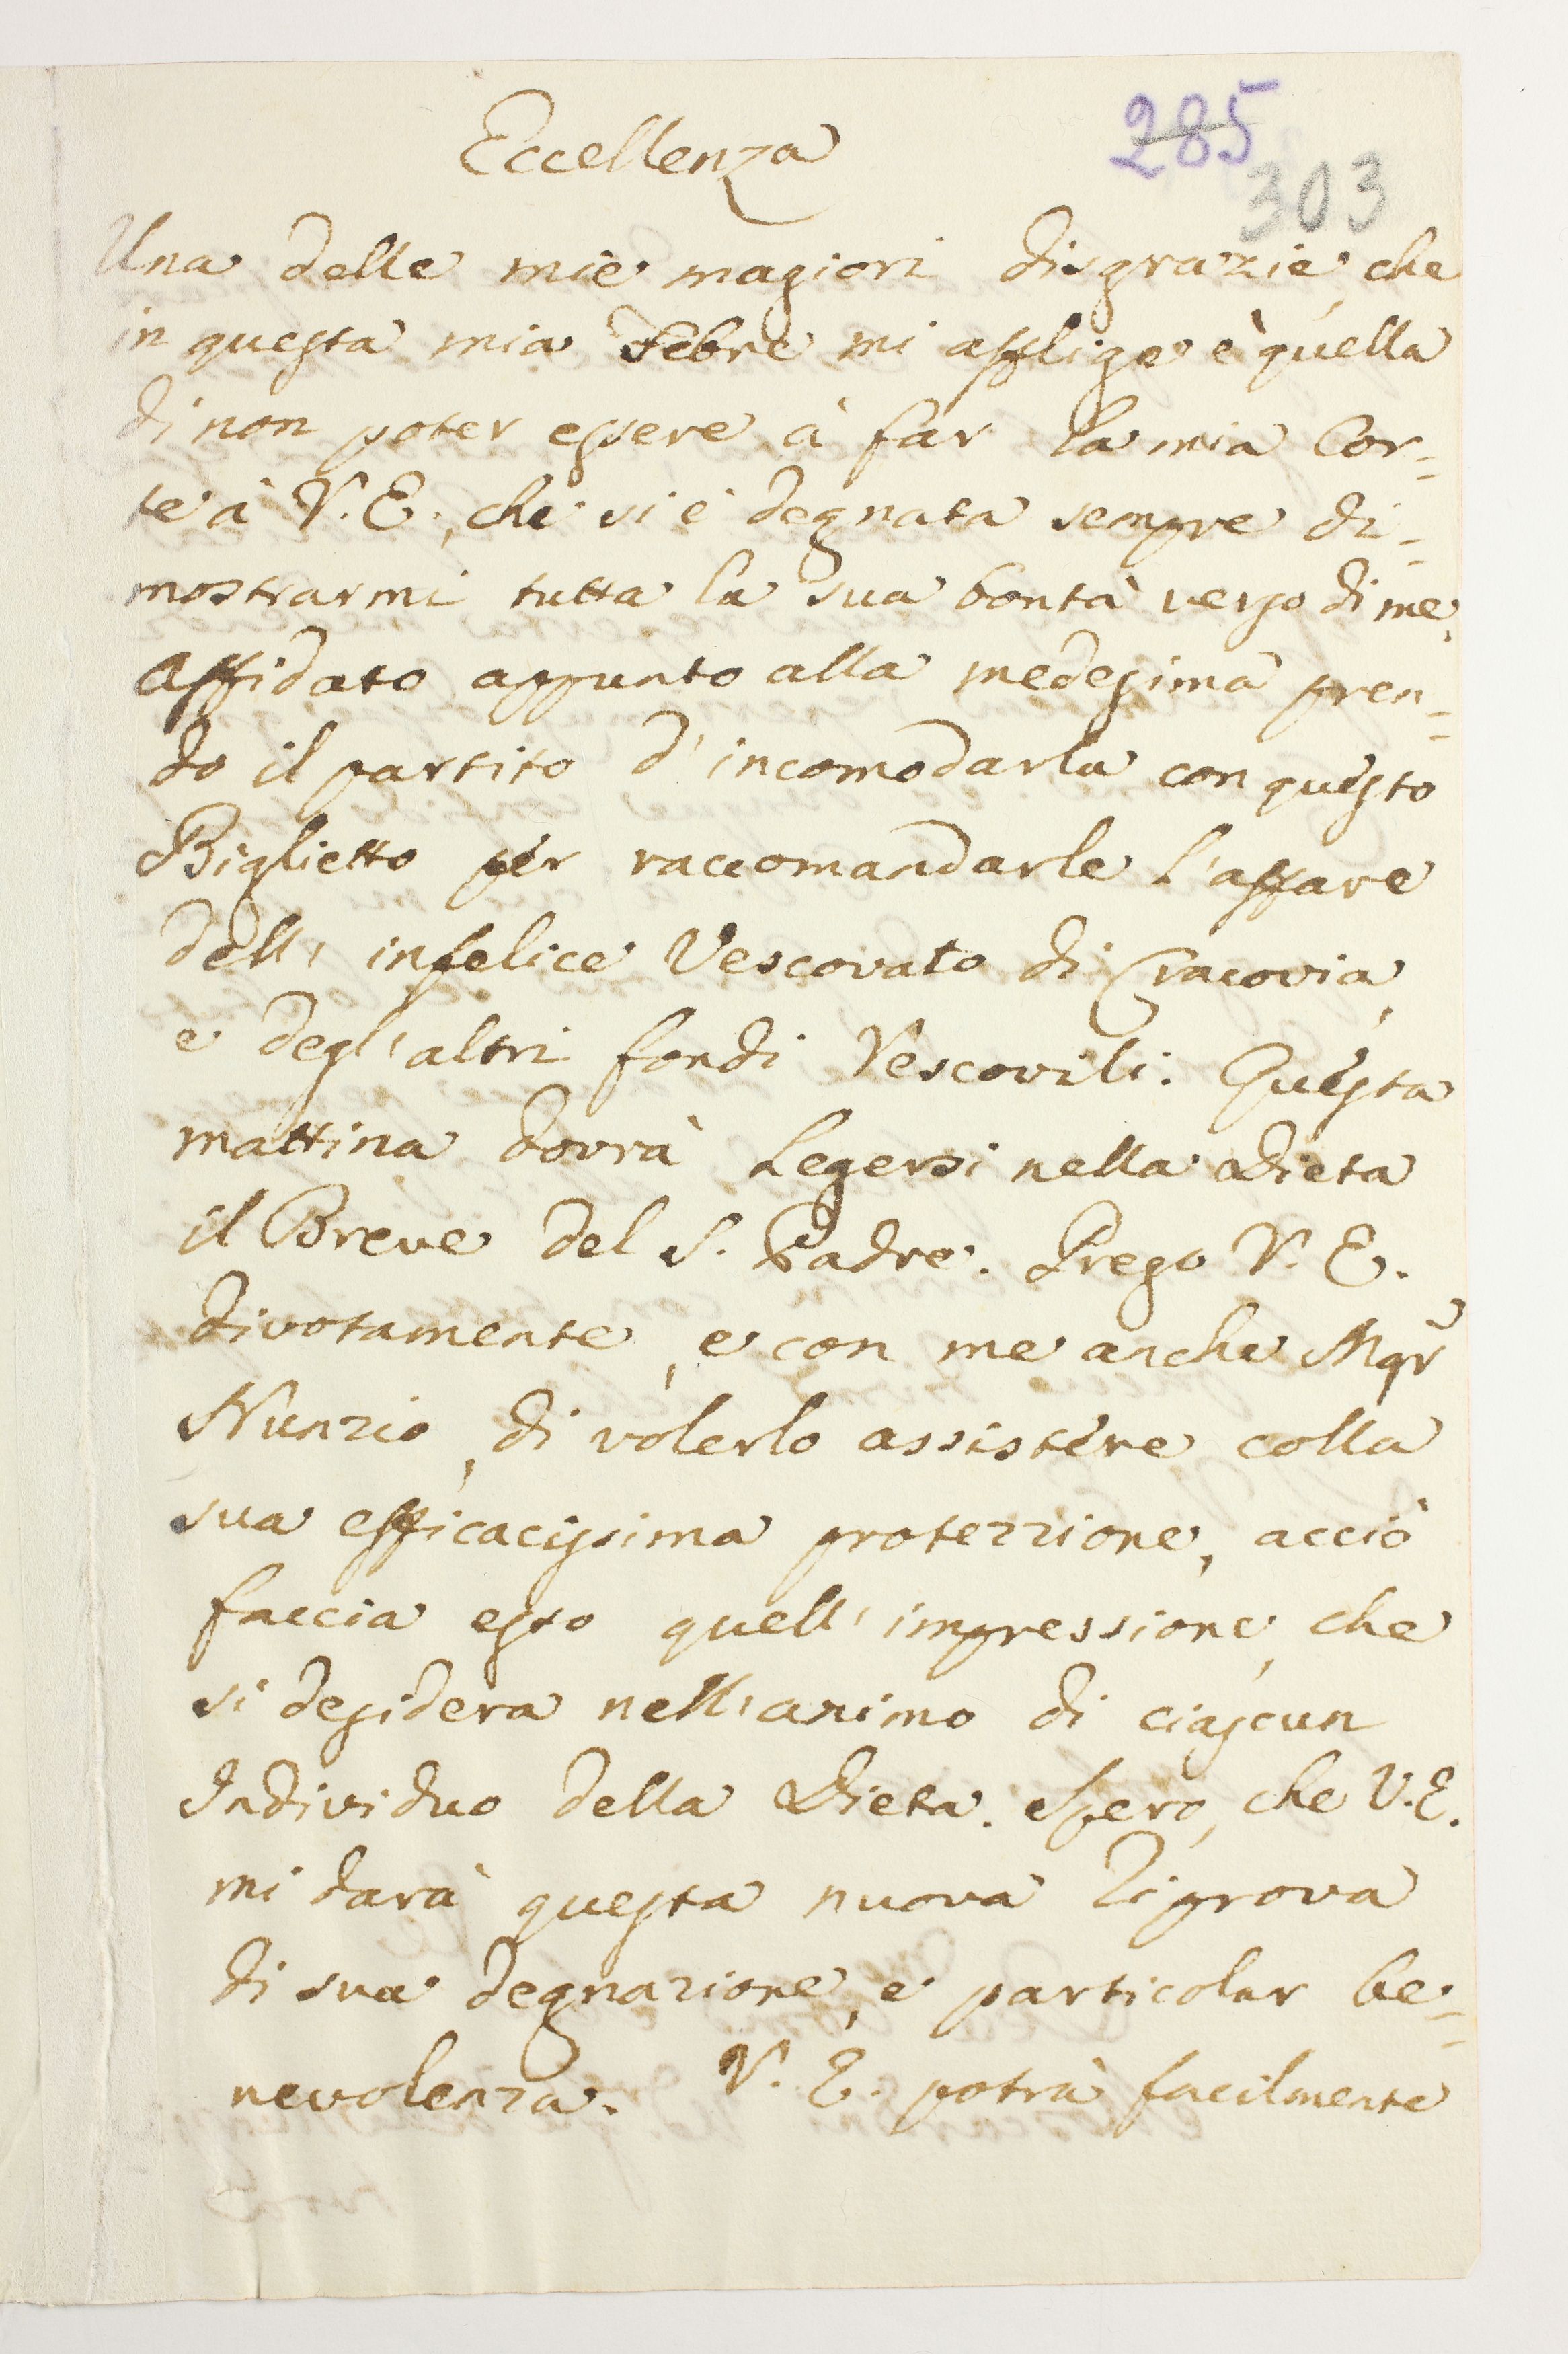 285
303
Eccellenza
Una delle mie magiori disgrazie, che
in questa mia Febre mi afflige è quella
di non poter essere à far la mia Cor=
te à V. E., che si è degnata sempre di=
mostrarmi tutta la sua bontà verso di me,
Affidato appunto alla medesima pren=
do il partito d'incomodarla con questo
Biglietto per raccomandarle l'affare
dell' infelice Vescovato di Cracovia,
e degl'altri fondi Vescovili. Questa
mattina dovrà Legersi nella Dieta
il Breve del S. Padre. Prego V. E.
divotamente, e con me anche Mgr
Nunzio, di volerlo assistere colla
sua efficacissima protezzione, acciò
faccia esso quell'impressione, che
si desidera nell'animo di ciascun
Individuo della Dieta. Spero, che V. E.
mi darà questa nuova Riprova
di sua degnazione, e particolar be=
nevolenza. V. E. potrà facilmente